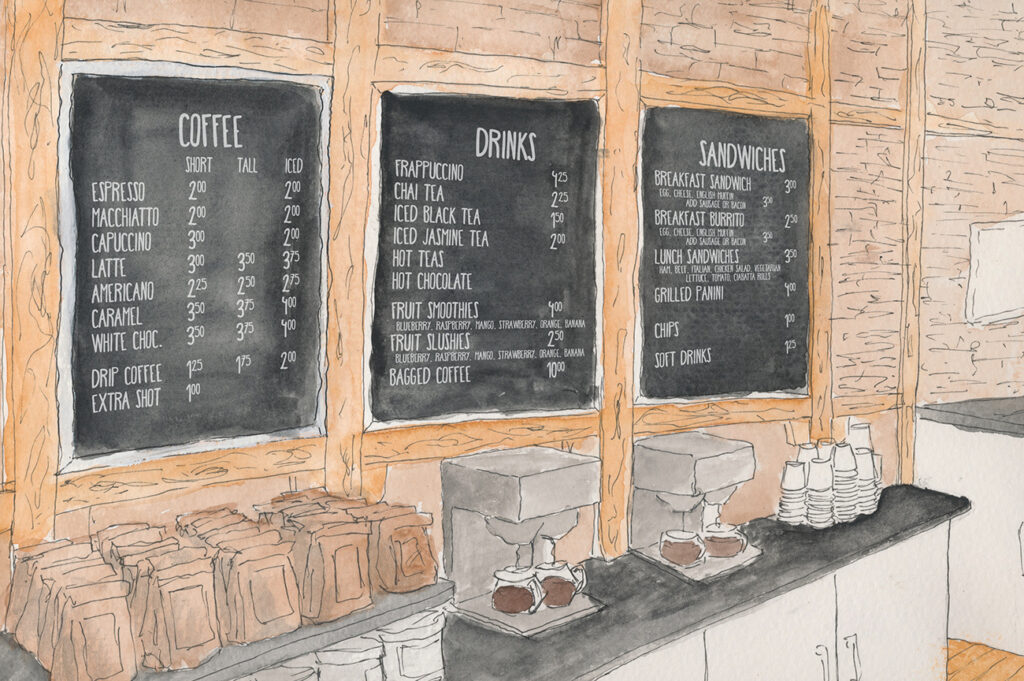 COFFEE
SHORT TALL ICED
ESPRESSO 2.00 2.00
MACCHIATTO 2.00 2.00
CAPUCCINO 3.00 2.00
LATTE 3.00 3.50 3.75
AMERICANO 2.25 2.50 2.75
CARAMEL 3.50 3.75 4.00
WHITE CHOC. 3.50 3.75 4.00
DRIP COFFEE 1.25 1.75 2.00
EXTRA SHOT 1.00
DRINKS
FRAPPUCCINO 4.25
CHAI TEA 2.25
ICED BLACK TEA 1.50
ICED JASMINE TEA 2.00
HOT TEAS
HOT CHOCOLATE
FRUIT SMOOTHIES 4.00
BLUEBERRY, RASPBERRY, MANGO, STRAWBERRY, ORANGE, BANANA
FRUIT SLUSHIES 2.50
BLUEBERRY, RASPBERRY, MANGO, STRAWBERRY, ORANGE, BANANA
BAGGED COFFEE 10.00
SANDWICHES
BREAKFAST SANDWICH 3.00
EGG, CHEESE, ENGLISH MUFFIN
ADD SAUSAGE OR BACON 3.50
BREAKFAST BURRITO 2.50
EGG, CHEESE, ENGLISH MUFFIN
ADD SAUSAGE OR BACON 3.50
LUNCH SANDWICHES 3.50
HAM, BEEF, ITALIAN, CHICKEN SALAD, VEGETARIAN
LETTUCE, TOMATO, CIABATTA ROLLS
GRILLED PANINI 4.00
CHIPS 1.00
SOFT DRINKS 1.25